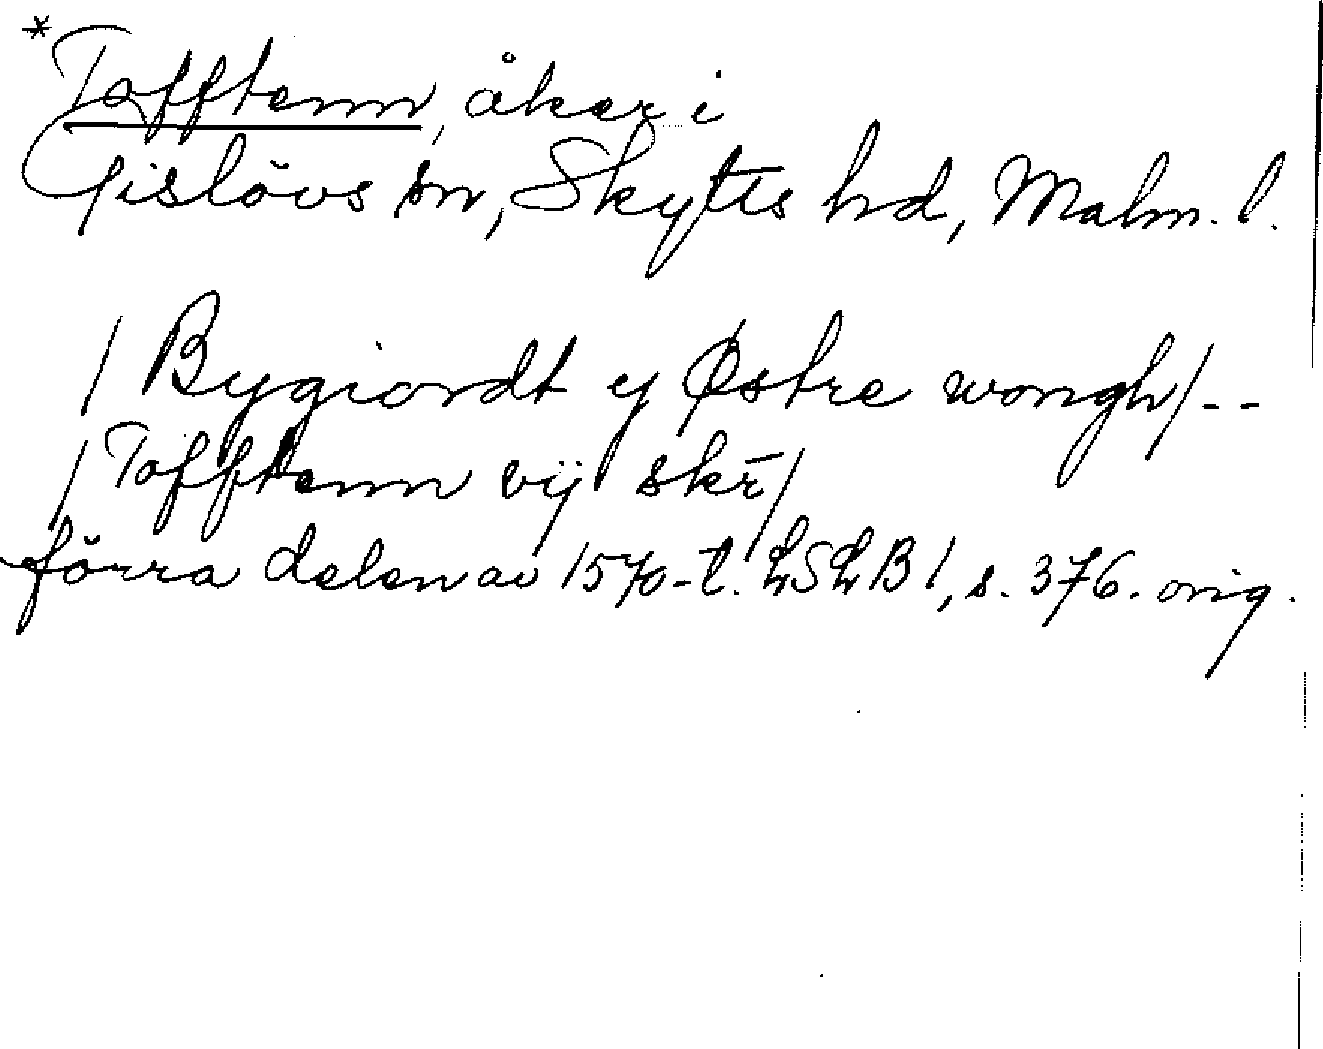 *Tofftenn, åker i
Gislövs sn, Skytts hd, Malm. l.
/Bygiordt y Østre wongh/--
/Tofftenn vÿ skr̄/
förra delen av 1570-t. LSLB1, s. 376. orig.